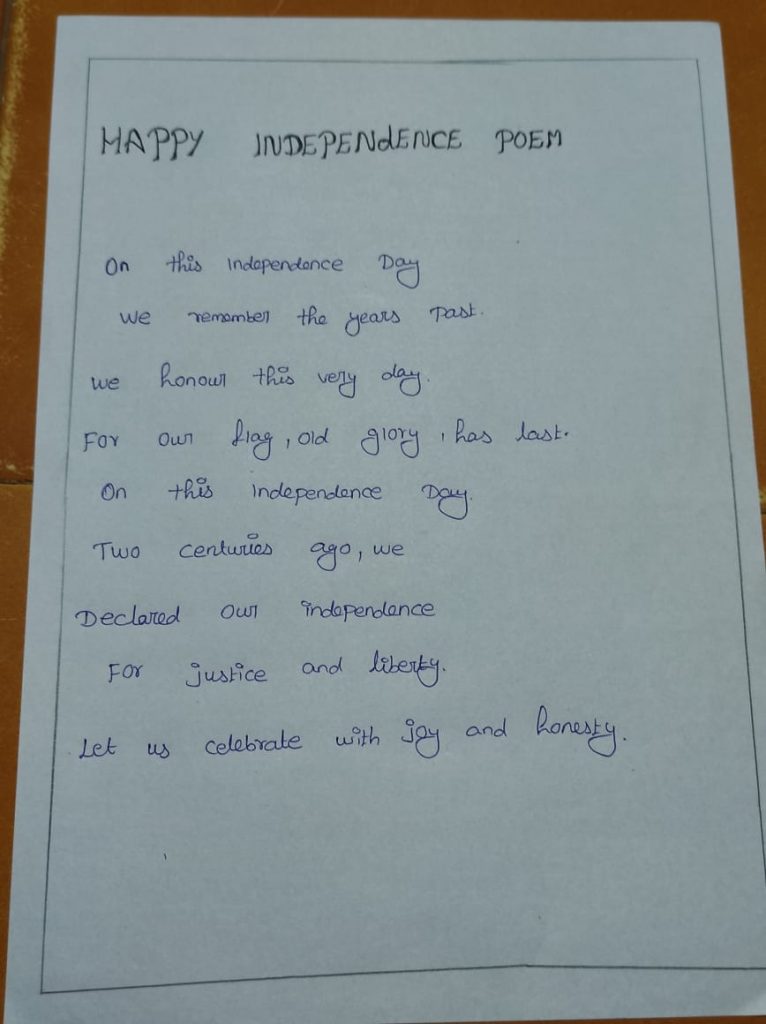 HAPPY INDEPENdENCE POEM
On this independence Day
we remember the years past.
we honour this very day.
For our flag, old glory, has last.
On this independence Day.
Two centuries ago, we
Declared our independence
For justice and liberty.
Let us celebrate with joy and honesty.